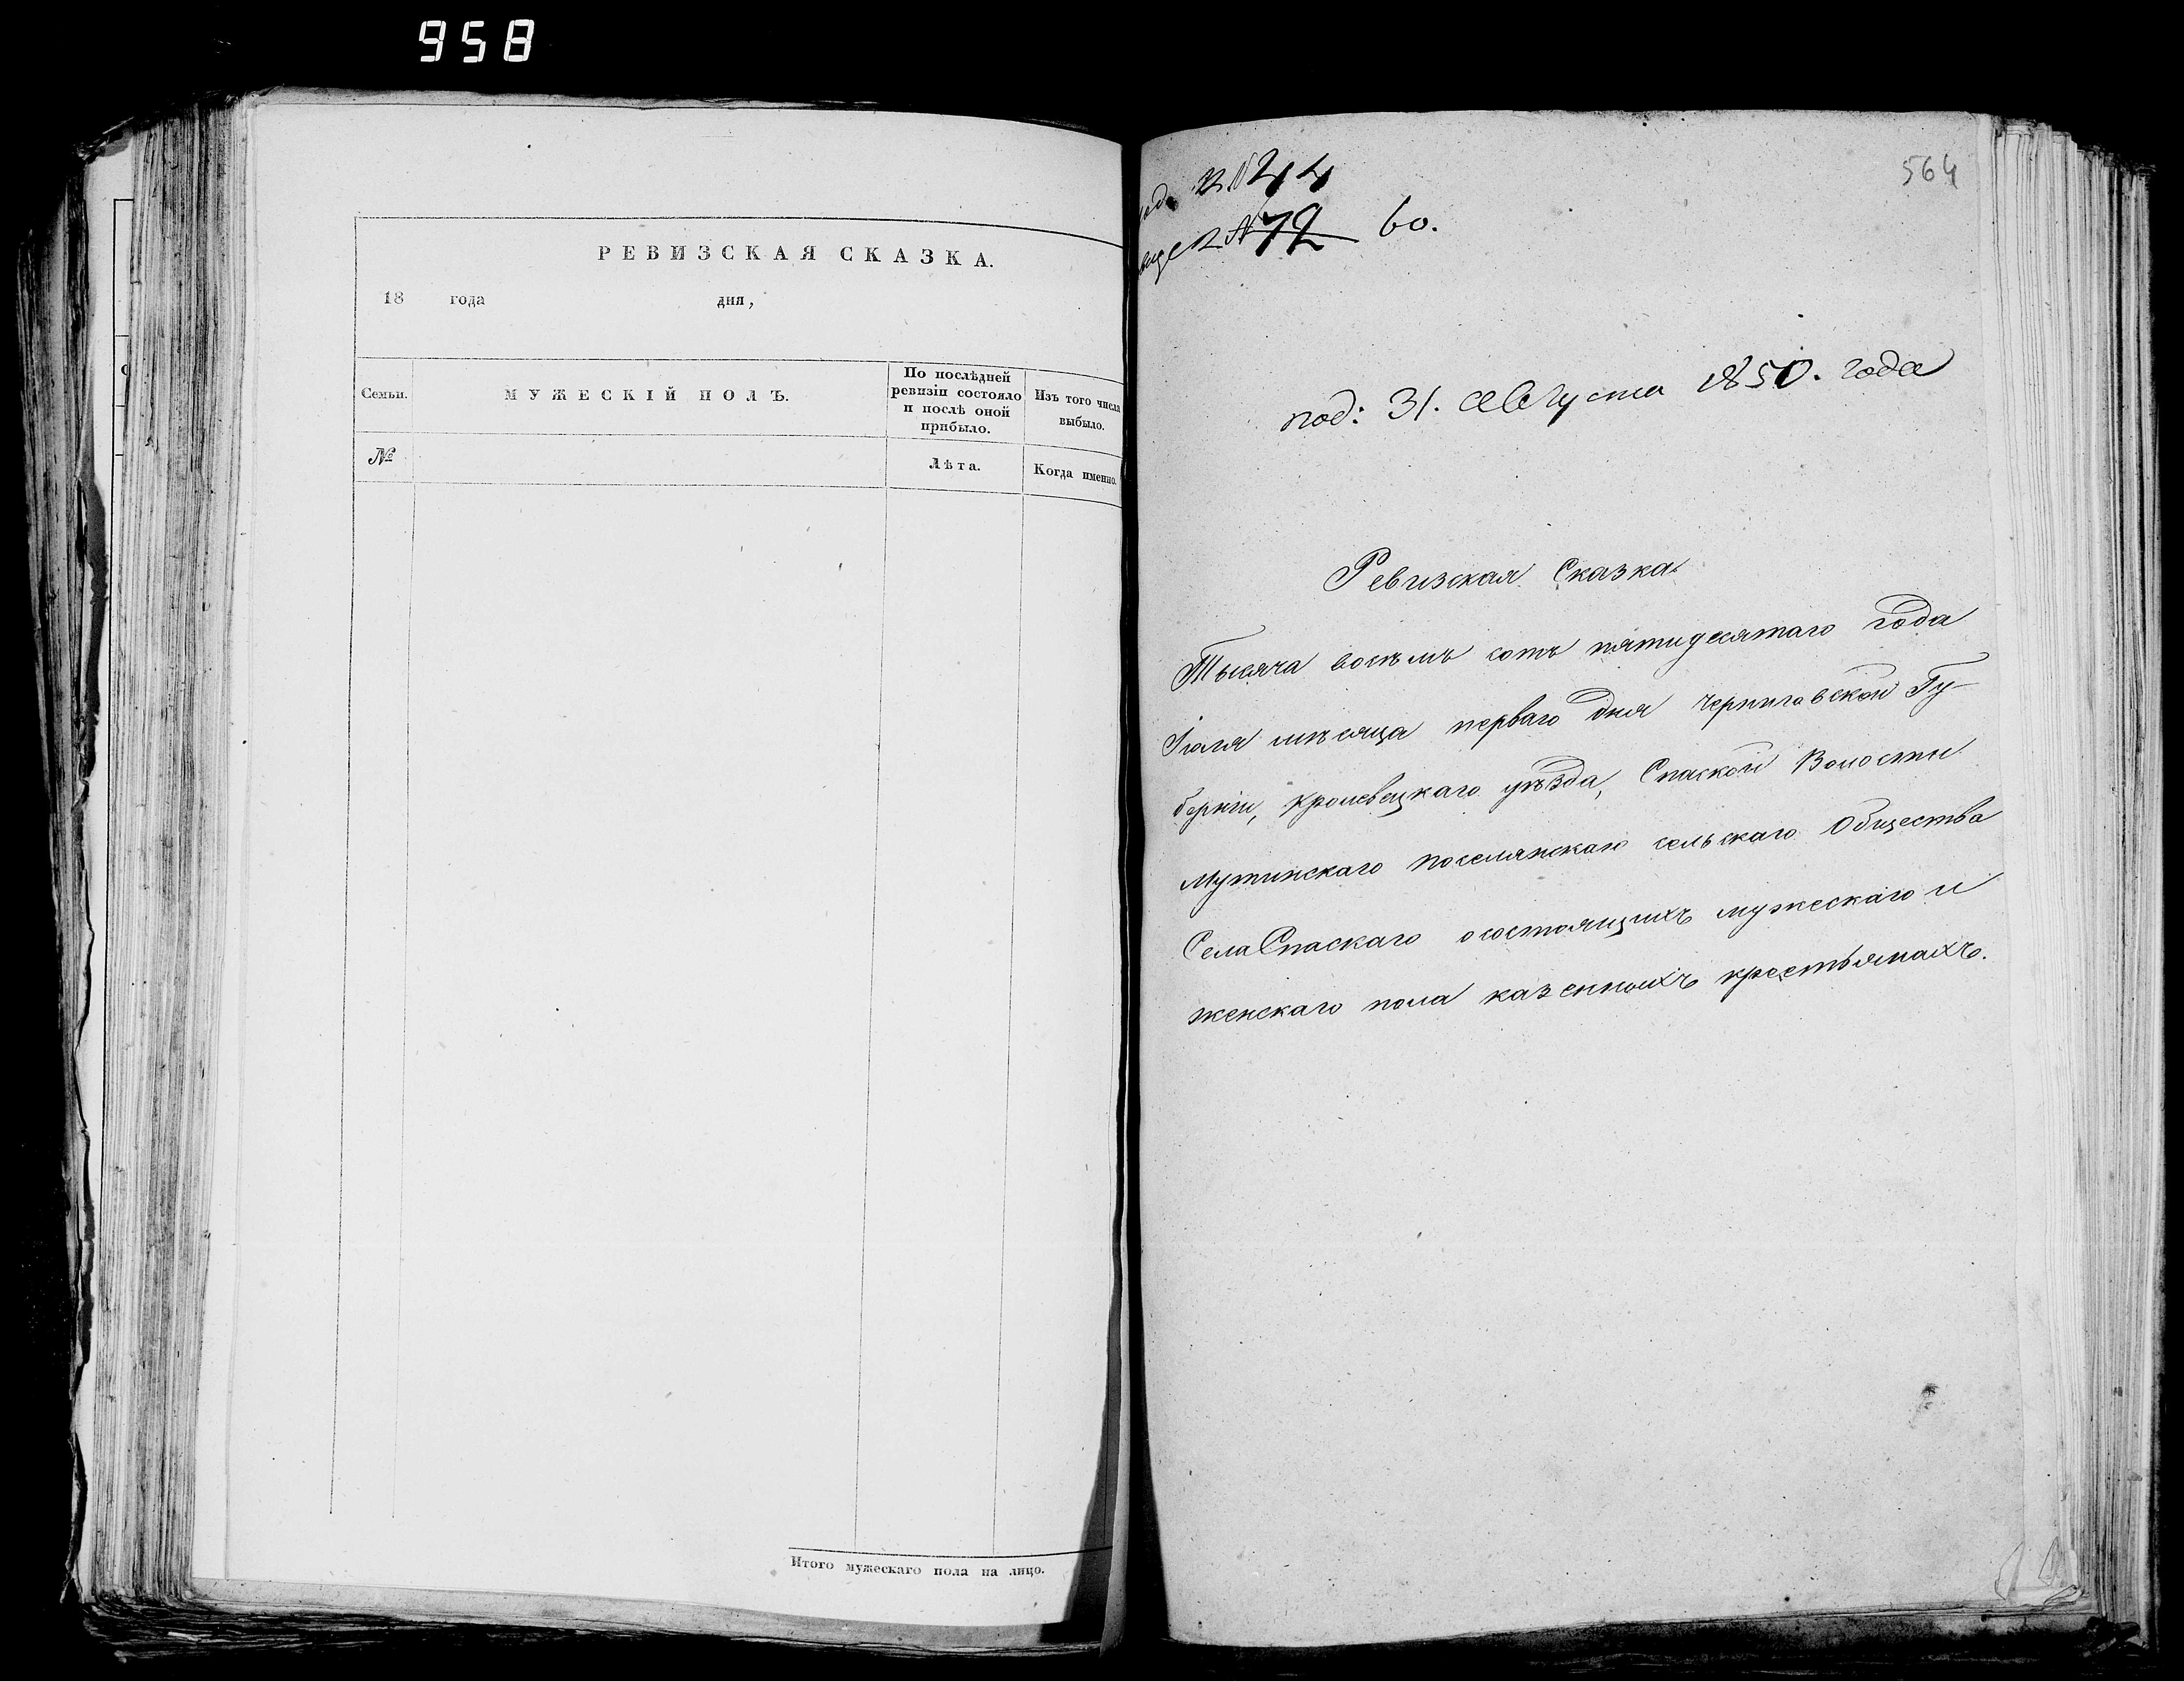 958
РЕВИЗСКАЯ СКАЗКА.
18 года дня,
Семьи.
МУЖЕСКІЙ ПОЛЪ.
По послѣдней
ревизіи состояло
и послѣ оной
прибыло.
Изъ того числа
выбыло.
№
Лѣта.
Когда именно.
Итого мужескаго пола на лицо.
564
№ 44
№ 72 60.
под: 31. Августа 1850. года
Ревизская Сказка
Тысяча восемь сотъ пятидесятаго года
Іюля мѣсяца перваго дня Черниговской Гу-
берніи, Кролевецкаго уѣзда, Спаской Волости
Мутинскаго поселянскаго сельскаго Общества
Села Спаскаго о состоящихъ мужескаго и
женскаго пола казенныхъ крестьянахъ.